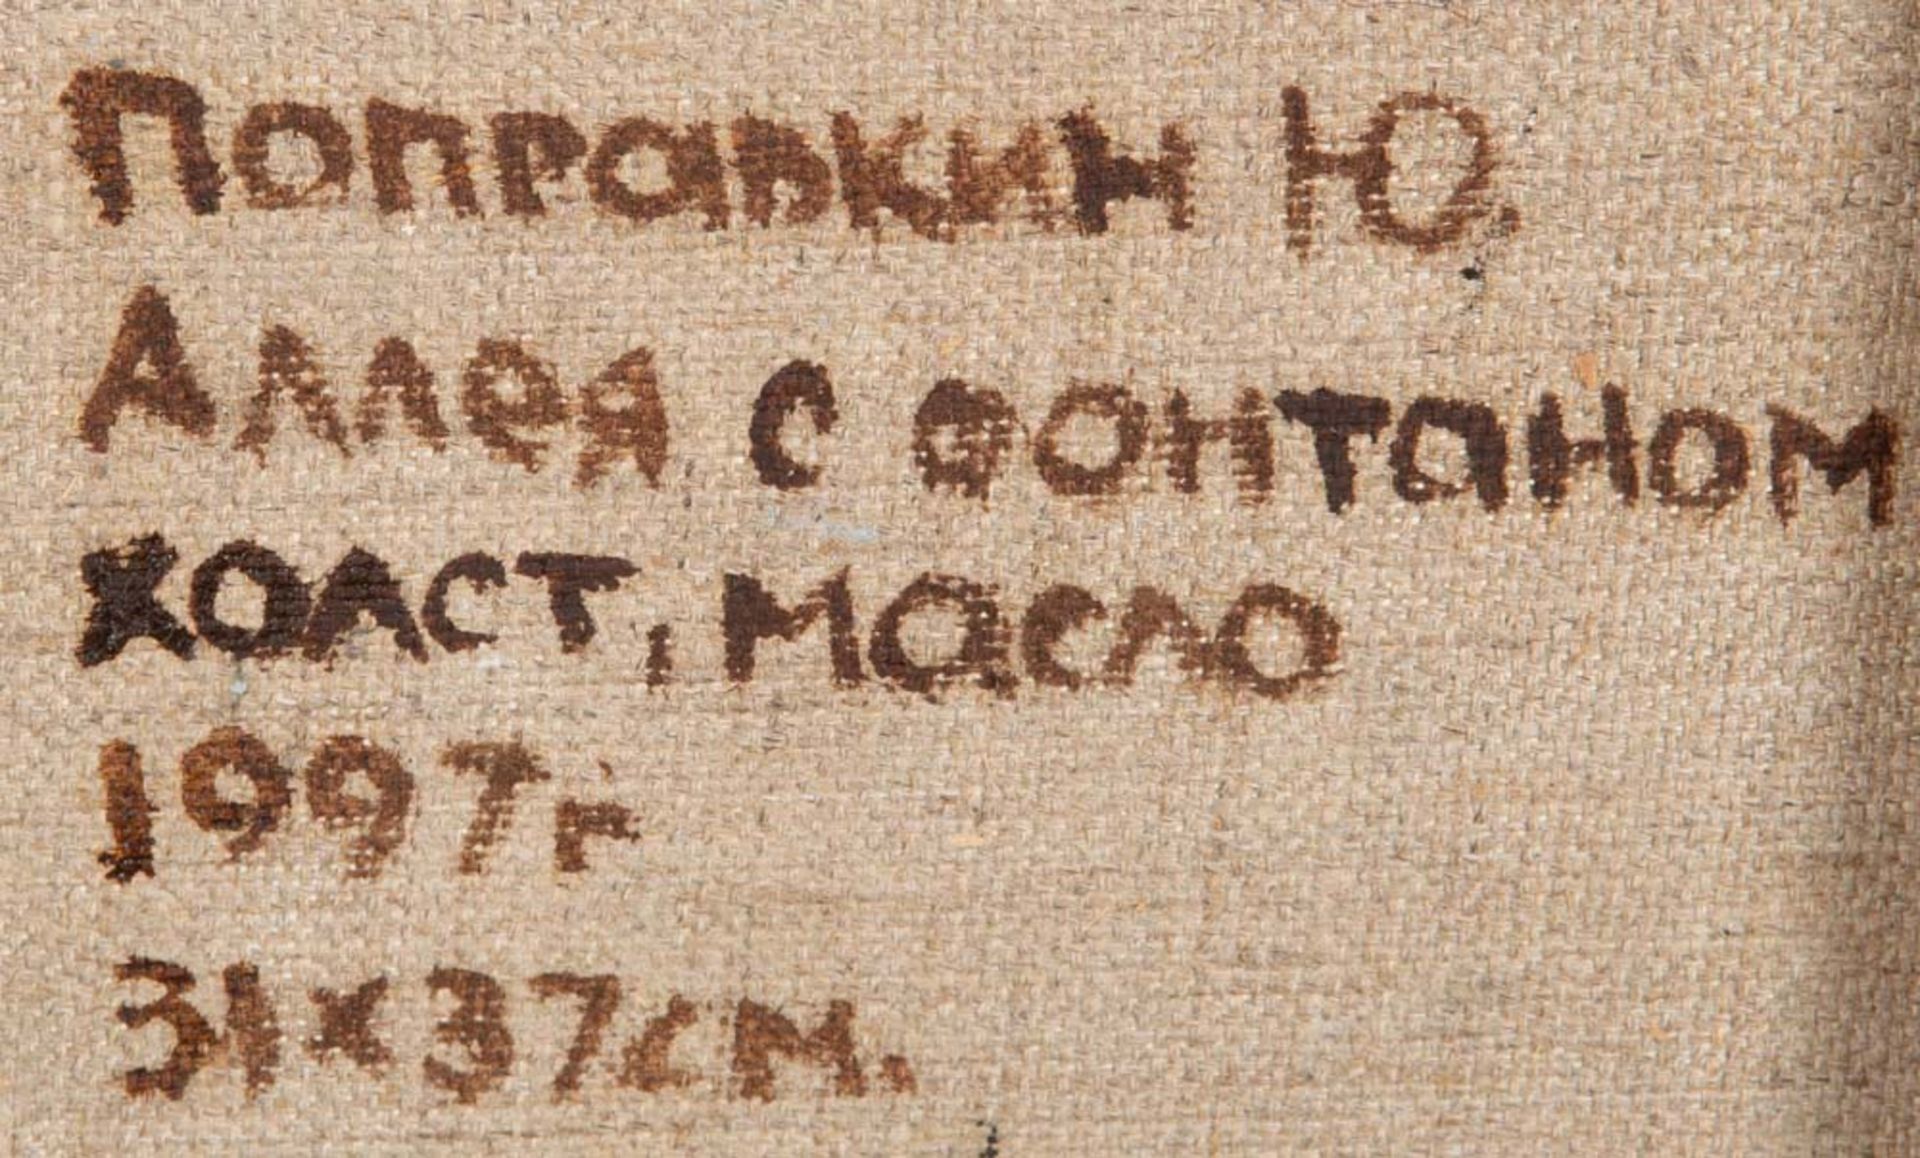 Поправкин Ю.
Аллея с фонтаном
холст, масло
1997г
31×37см.